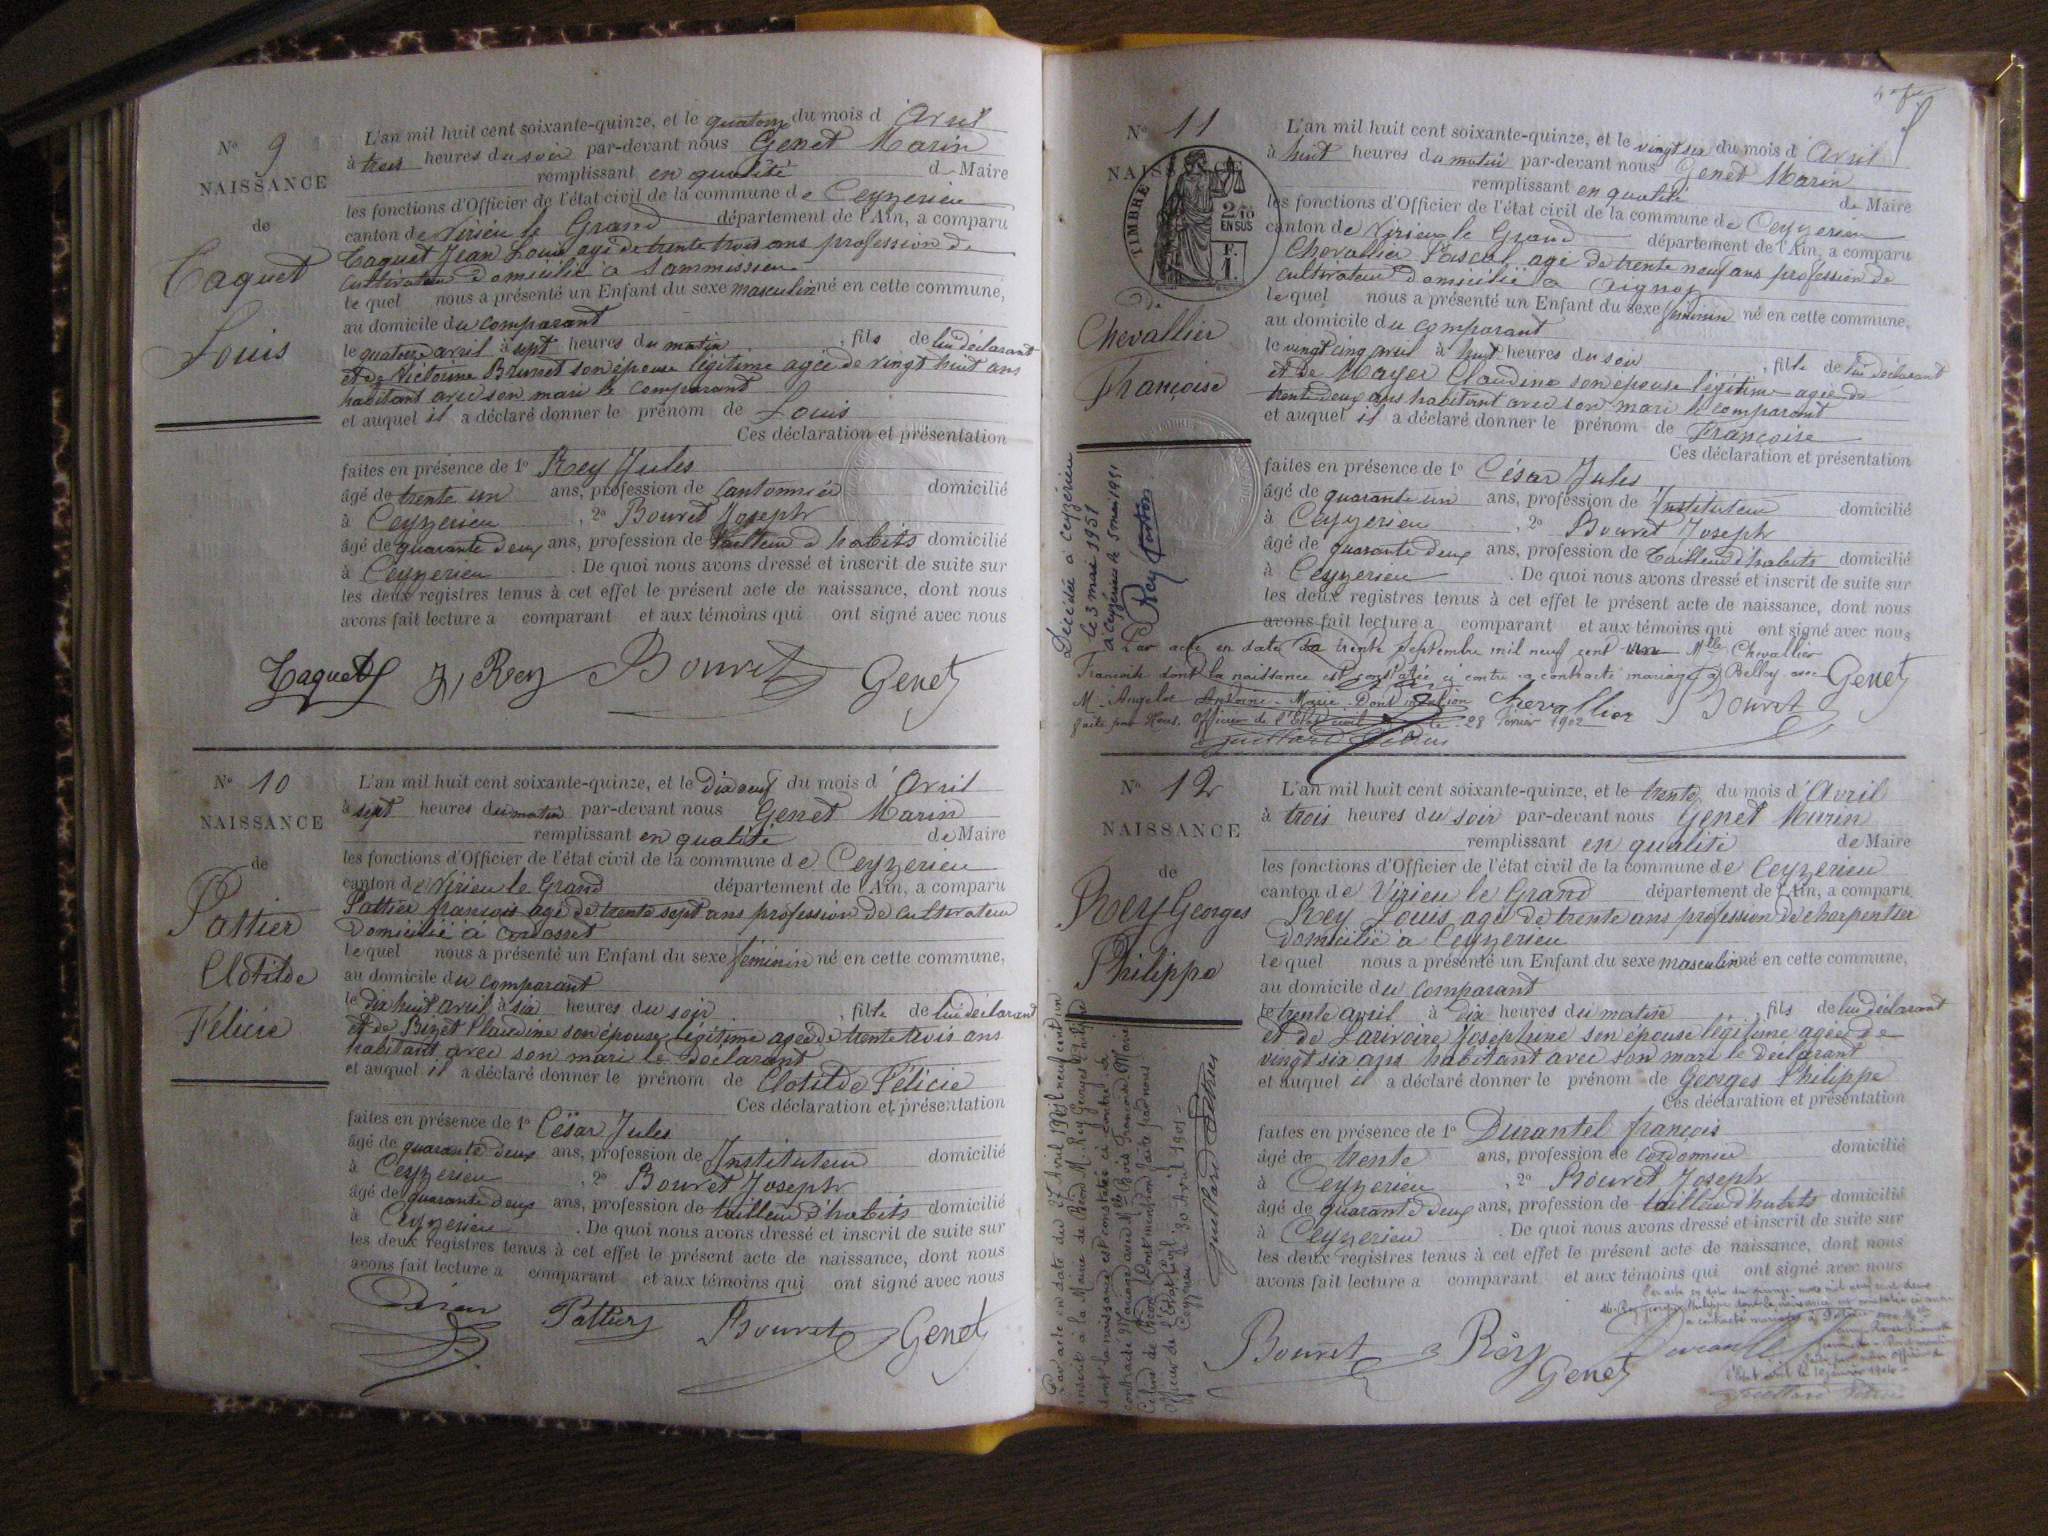 N° 9
NAISSANCE
de
Taquet
Louis
L'an mil huit cent soixante-quinze, et le quatorze du mois d'Avril
à trois heures du soir par-devant nous Genet Marin
remplissant en qualité de Maire
les fonctions d'Officier de l'état civil de la commune de Ceyzerieu
canton de Virieu le Grand département de l'Ain, a comparu
Taquet Jean Louis agé de trente trois ans profession de
cultivateur domicilié à
le quel nous a présenté un Enfant du sexe masculin né en cette commune,
au domicile du comparant
le quatorze avril à sept heures du matin, fils de lui déclarant
et de Victorine Brunet son épouse légitime agée de vingt huit ans
habitant avec son mari le comparant
et auquel il a déclaré donner le prénom de Louis
Ces déclaration et présentation
faites en présence de 1° Rey Jules
âgé de trente un ans, profession de Cantonnier domicilié
à Ceyzerieu, 2° Bouvet Joseph
âgé de quarante deux ans, profession de tailleur d'habits domicilié
à Ceyzerieu. De quoi nous avons dressé et inscrit de suite sur
les deux registres tenus à cet effet le présent acte de naissance, dont nous
avons fait lecture a comparant et aux témoins qui ont signé avec nous
Taquet J, Rey Bouvet Genet
N° 10
NAISSANCE
de
Pattier
Clotilde
Félicie
L'an mil huit cent soixante-quinze, et le dix neuf du mois d'Avril
à sept heures du matin par-devant nous Genet Marin
remplissant en qualité de Maire
les fonctions d'Officier de l'état civil de la commune de Ceyzerieu
canton de Virieu le Grand département de l'Ain, a comparu
Pattier françois agé de trente sept ans profession de cultivateur
domicilié à
le quel nous a présenté un Enfant du sexe féminin né en cette commune,
au domicile du comparant
le dix huit avril à six heures du soir, fille de lui déclarant
et de Bizet Claudine son épouse légitime agée de trente trois ans
habitant avec son mari le déclarant
et auquel il a déclaré donner le prénom de Clotilde Félicie
Ces déclaration et présentation
faites en présence de 1° César Jules
âgé de quarante deux ans, profession de Instituteur domicilié
à Ceyzerieu, 2° Bouvet Joseph
âgé de quarante deux ans, profession de tailleur d'habits domicilié
à Ceyzerieu. De quoi nous avons dressé et inscrit de suite sur
les deux registres tenus à cet effet le présent acte de naissance, dont nous
avons fait lecture a comparant et aux témoins qui ont signé avec nous
César Pattier Bouvet Genet
N° 11
NAISSANCE
TIMBRE
2/10
EN SUS
F.
1.
de
Chevallier
Françoise
L'an mil huit cent soixante-quinze, et le vingt six du mois d'Avril
à huit heures du matin par-devant nous Genet Marin
remplissant en qualité de Maire
les fonctions d'Officier de l'état civil de la commune de Ceyzerieu
canton de Virieu le Grand département de l'Ain, a comparu
Chevallier Pascal agé de trente neuf ans profession de
cultivateur domicilié à Avignoz
le quel nous a présenté un Enfant du sexe féminin né en cette commune,
au domicile du comparant
le vingt cinq avril à huit heures du soir, fille de lui déclarant
et de Mayer Claudine son épouse légitime agée de
trente deux ans habitant avec son mari le comparant
et auquel il a déclaré donner le prénom de Françoise
Ces déclaration et présentation
faites en présence de 1° César Jules
âgé de quarante un ans, profession de Instituteur domicilié
à Ceyzerieu, 2° Bouvet Joseph
âgé de quarante deux ans, profession de tailleur d'habits domicilié
à Ceyzerieu. De quoi nous avons dressé et inscrit de suite sur
les deux registres tenus à cet effet le présent acte de naissance, dont nous
avons fait lecture a comparant et aux témoins qui ont signé avec nous
Décédée à Ceyzérieu
le 3 mai 1951
à Ceyzérieu le 5 mai 1951
Par acte en date du trente Septembre mil neuf cent un Mlle Chevallier
Françoise dont la naissance est constatée ci contre a contracté mariage à Belley avec
M. Angelot Antoine Marie. Dont mention
faite par Nous, Officier de l'Etat civil le 28 Janvier 1902
Chevallier Bouvet Genet
N° 12
NAISSANCE
de
Rey Georges
Philippe
L'an mil huit cent soixante-quinze, et le trente du mois d'Avril
à trois heures du soir par-devant nous Genet Marin
remplissant en qualité de Maire
les fonctions d'Officier de l'état civil de la commune de Ceyzerieu
canton de Virieu le Grand département de l'Ain, a comparu
Rey Louis agé de trente ans profession de charpentier
domicilié à Ceyzerieu
le quel nous a présenté un Enfant du sexe masculin né en cette commune,
au domicile du comparant
le trente avril à dix heures du matin, fils de lui déclarant
et de Larivoire Josephine son épouse légitime agée de
vingt six ans habitant avec son mari le déclarant
et auquel il a déclaré donner le prénom de Georges Philippe
Ces déclaration et présentation
faites en présence de 1° Durantel françois
âgé de trente ans, profession de cordonnier domicilié
à Ceyzerieu, 2° Bouvet Joseph
âgé de quarante deux ans, profession de tailleur d'habits domicilié
à Ceyzerieu. De quoi nous avons dressé et inscrit de suite sur
les deux registres tenus à cet effet le présent acte de naissance, dont nous
avons fait lecture a comparant et aux témoins qui ont signé avec nous
Par acte en date du 27 Avril mil neuf cent un
inscrit à la Mairie de Béon M. Rey Georges Philippe
dont la naissance est constatée ci contre a
contracté Mariage avec Mlle Françoise Marie
Céline de Béon. Dont mention faite par nous
Officier de l'Etat Civil
Ceyzerieu le 30 Avril 1901
Bouvet Rey Genet Durantel
l'Etat civil le 10 janvier 1904